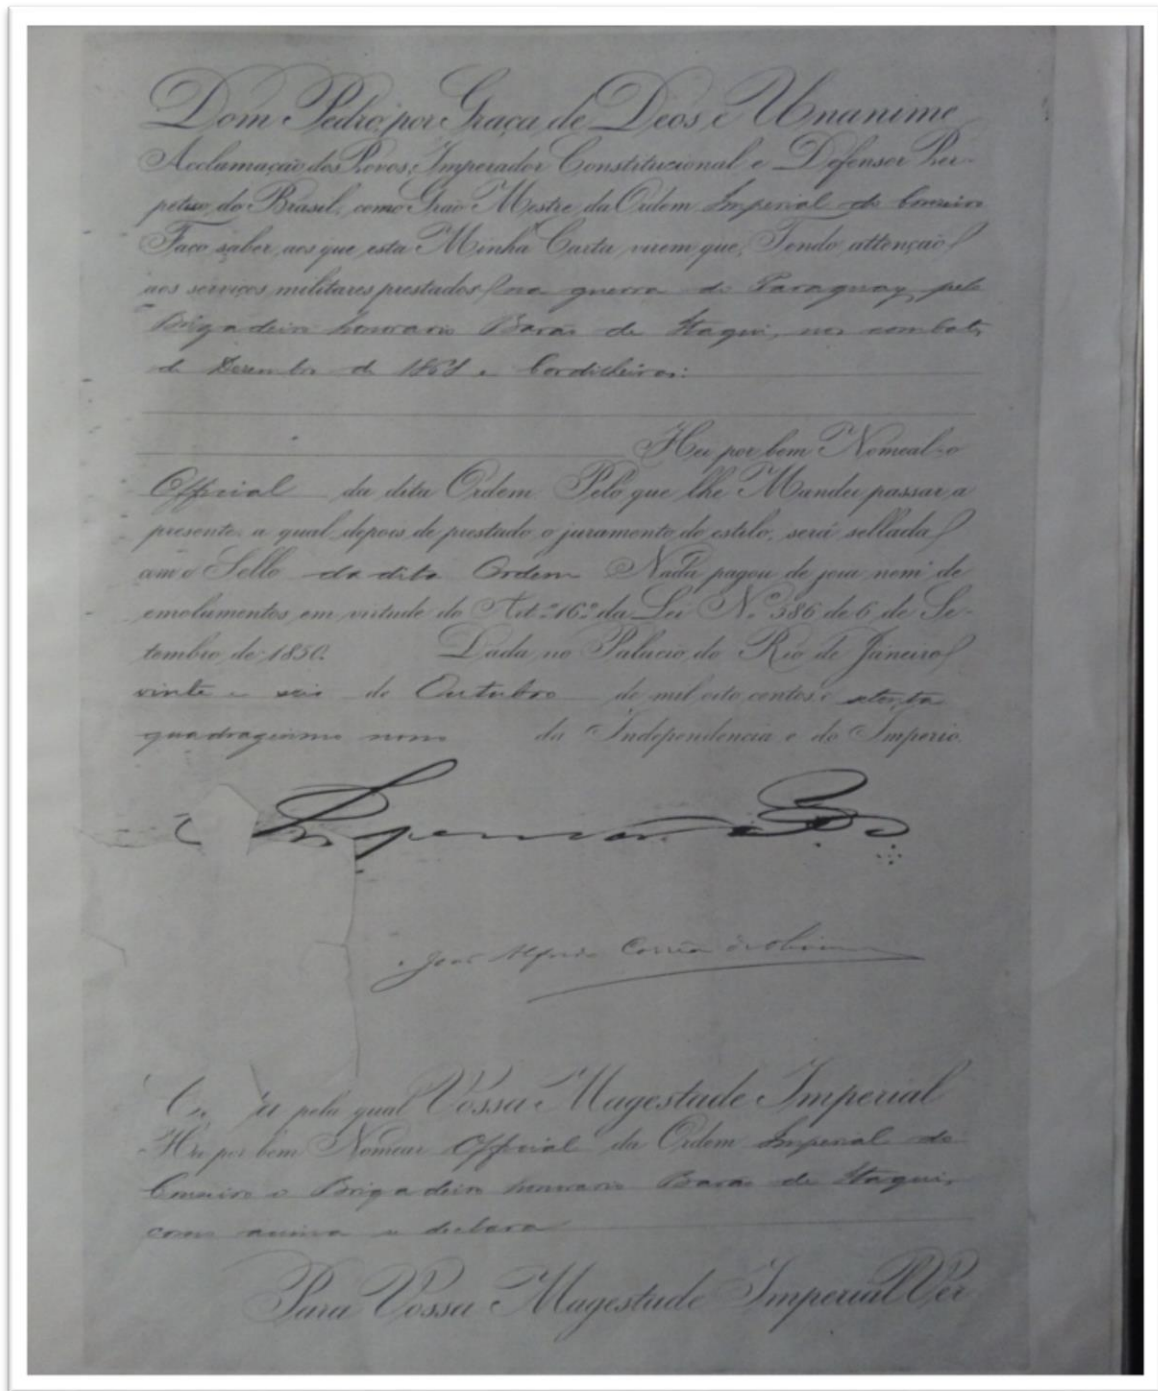 Dom Pedro, por Graça de Deos, e Unanime
Acclamação dos Povos, Imperador Constitucional e Defensor Per-
petuo do Brasil, como Grão Mestre da Ordem Imperial do Cruzeiro
Faço saber aos que esta Minha Carta virem que, Tendo attenção
aos serviços militares prestados na guerra do Paraguay, pelo
Brigadeiro honorario Barão de Itaqui, nos combates
de Dezembro de 1868 e Cordilheiras:
Hei por bem Nomeal-o
Official da dita Ordem Pelo que lhe Mandei passar a
presente, a qual, depois de prestado o juramento do estilo, será sellada
com o Sello da dita Ordem Nada pagou de joia nem de
emolumentos em virtude do Art.º 16º da Lei N.º 586 de 6 de Se-
tembro de 1850. Dada no Palacio do Rio de Janeiro
vinte e seis de Outubro de mil oito centos e setenta
quadragesimo nono da Independencia e do Imperio.
Imperador
João Alfredo Corrêa de Oliveira
pela qual Vossa Magestade Imperial
Ha por bem Nomear Official da Ordem Imperial do
Cruzeiro o Brigadeiro honorario Barão de Itaqui,
como acima se declara
Para Vossa Magestade Imperial Ver